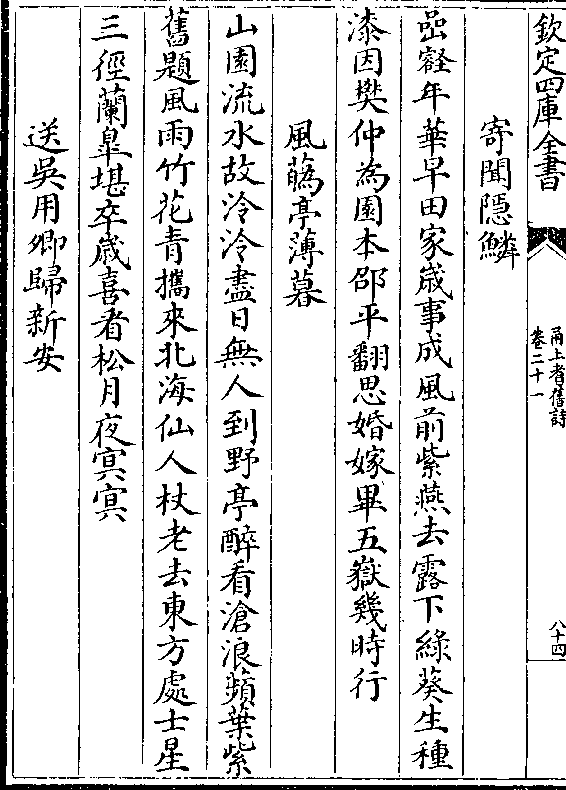 欽定四庫全書
甬上耆舊詩
卷二十一
八十四
寄聞隱鱗
嵒壑年華早田家歲事成風前紫燕去露下綠葵生種
漆因樊仲為園本邵平翻思婚嫁畢五嶽幾時行
風蘤亭薄暮
山園流水故泠泠盡日無人到野亭醉看滄浪蘋葉紫
舊題風雨竹花青攜來北海仙人杖老去東方處士星
三徑蘭皐堪卒歲喜看松月夜冥冥
送吳用卿歸新安